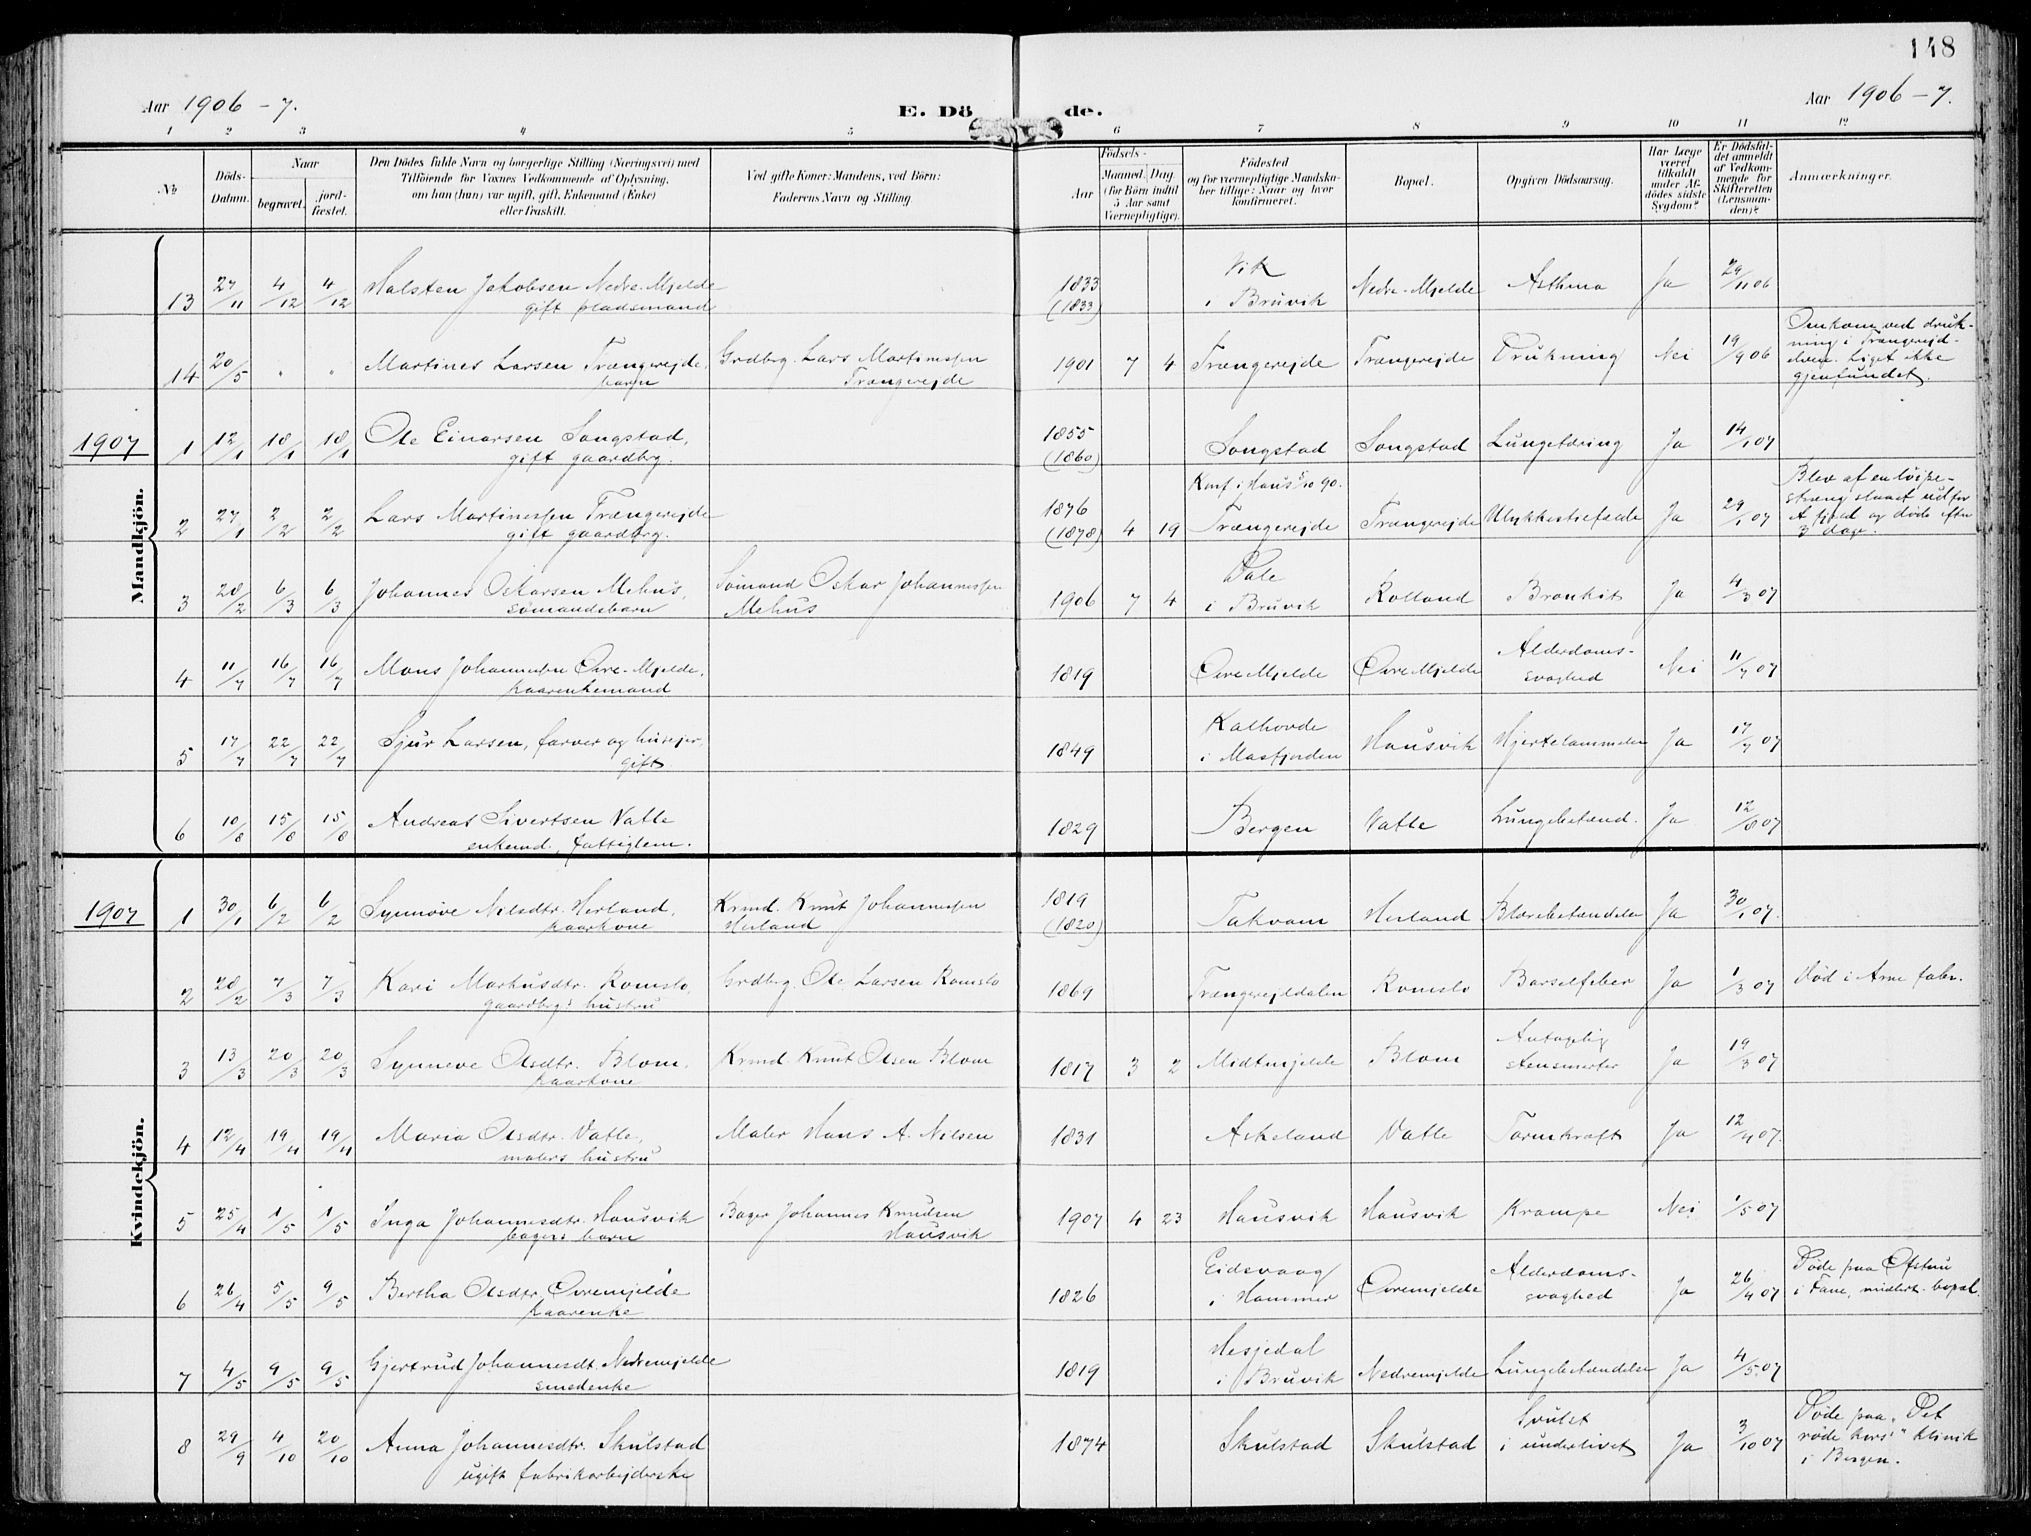 148
Aar 1906 - 7.
E. Döde.
Aar 1906 - 7.
1 2 3 4 5 6 7 8 9 10 11 12
No
Döds-Datum.
Naar
begravet.
jord-fæstet.
Den Dödes fulde Navn og borgerlige Stilling (Næringsvei) med
Tilföiende for Voxnes Vedkommende af Oplysning,
om han (hun) var ugift, gift, Enkemand (Enke)
eller fraskilt.
Ved gifte Koner: Mandens, ved Börn:
Faderens Navn og Stilling.
Födsels-
Aar
Maaned. Dag
(for Börn indtil
5 Aar samt
Værnepligtige).
Födested
og for værnepligtige Mandska-
ber tillige: Naar og hvor
konfirmeret.
Bopæl.
Opgiven Dödsaarsag.
Har Læge
været
tilkaldt
under Af-
dödes sidste
Sygdom?
Er Dödsfal-
det anmeldt
af Vedkom-
mende for
Skifteretten
(Lensman-
den)?
Anmærkninger.
Mandkjön.
13 27/11 4/12 4/12 Halsten Jakobsen Nedre-Mjelde gift pladsmand 1833 (1833) Vik i Bruvik Nedre-Mjelde Asthma Ja 29/11 06
14 20/5 " " Martines Larsen Trængerejde, barn Grdbrg. Lars Martinessen Trængerejde 1901 7 4 Trængerejde Trængerejde Drukning Nei 19/9 06 Omkom ved druk-
ning i Trængerejd-
elven. Liget ikke
gjenfundet.
1907
1 12/1 18/1 18/1 Ole Einarsen Songstad, gift gaardbrg. 1855 (1860) Songstad Songstad Lungetæring Ja 14/1 07
2 27/1 2/2 2/2 Lars Martinessen Trængerejde gift gaardbrg. 1876 (1878) 4 19 Konf. i Haus 5/10 90. Trængerejde Trængerejde Ulykkestilfælde Ja 29/1 07 Blev af en løipe-
stræng slaaet udfor
et fjeld og døde efter
3 dage.
3 28/2 6/3 6/3 Johannes Oskarsen Mehus, sømandsbarn Sømand Oskar Johannessen Mehus 1906 7 4 Dale i Bruvik Rolland Bronkit Ja 4/3 07
4 11/7 16/7 16/7 Mons Johannessen Øvre-Mjelde, kaarenkemand 1819 Øvre Mjelde Øvre Mjelde Alderdoms-
svaghed Nei 11/7 07
5 17/7 22/7 22/7 Sjur Larsen, farver og husejer, gift 1849 Kalhovde i Masfjorden Hausvik Hjertelammelse Ja 17/7 07
6 10/8 15/8 15/8 Andreas Sivertsen Valle enkemd., fattiglem. 1829 Bergen Valle Lungebetænd. Ja 12/8 07
Kvindekjön.
1907
1 30/1 6/2 6/2 Synnøve Nilsdtr. Herland, kaarkone Krmd. Knut Johannessen Herland 1819 (1820) Takvam Herland Blærebetændelse Ja 30/1 07.
2 28/2 7/3 7/3 Kari Markusdtr. Romslo, gaardbrgs hustru Grdbrg. Ole Larsen Romslo 1869 Trængerejddalen Romslo Barselfeber Ja 1/3 07 Død i Arne fabr.
3 13/3 20/3 20/3 Synneve Olsdtr. Blom, kaarkone Krmd. Knut Olsen Blom 1817 3 2 Midtmjelde Blom Antagelig
stensmerter Ja 19/3 07
4 12/4 19/4 19/4 Maria Olsdtr. Valle, malers hustru Maler Hans A. Nilsen 1831 Askeland Valle Tarmkræft Ja 12/4 07.
5 25/4 1/5 1/5 Inga Johannesdtr. Hausvik bagers barn Bager Johannes Knudsen Hausvik 1907 4 23 Hausvik Hausvik Krampe Nei 1/5 07
6 26/4 5/5 9/5 Bertha Olsdtr. Øvremjelde kaarenke 1826 Eidsvaag i Hammer Øvremjelde Alderdoms-
svaghed Ja 26/4 07 Døde paa
i Fane, midlert. bopæl.
7 4/5 9/5 9/5 Gjertrud Johannesdt. Nedremjelde smedenke 1819 Hesjedal i Bruvik Nedremjelde Lungebetændelse Ja 4/5 07
8 29/9 4/10 20/10 Anna Johannesdtr. Skulstad ugift fabrikarbejderske 1874 Skulstad Skulstad Svulst
i underlivet Ja 3/10 07 Døde paa "Det
røde kors'" klinik
i Bergen.